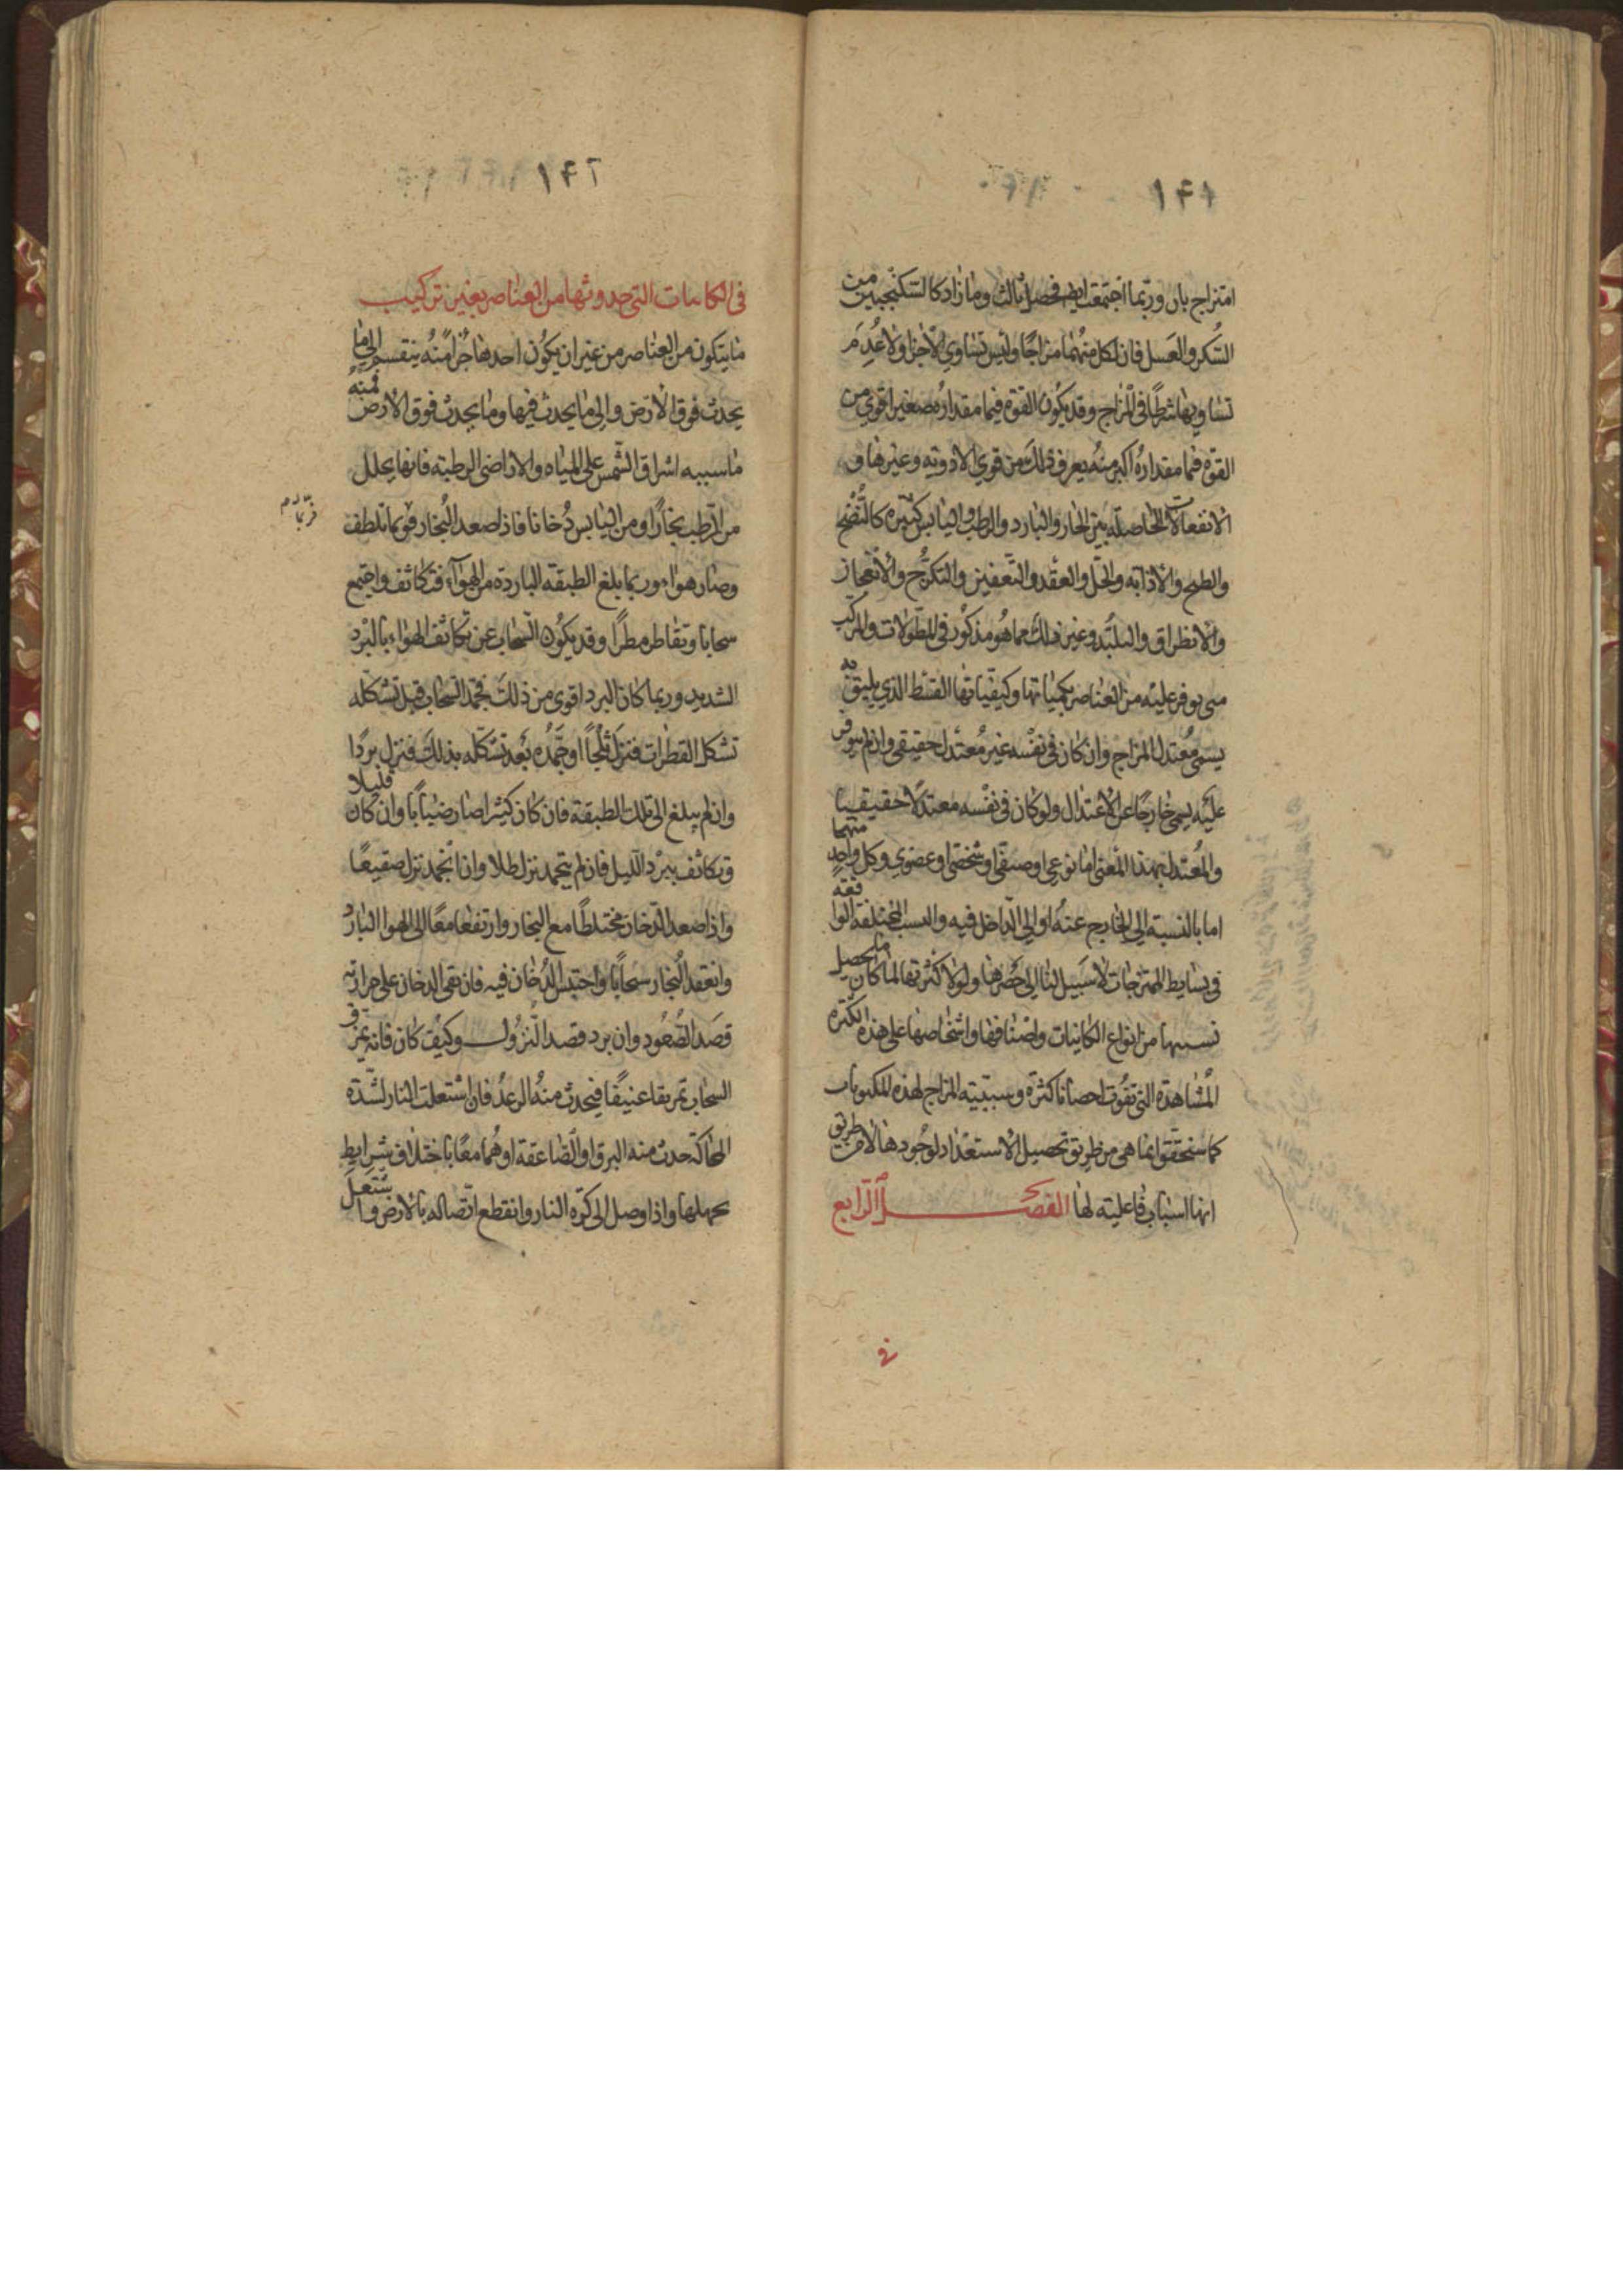 ١٤١
امتزاج ثان وربما اجتمعت ايضا فحصل ثالث وما زاد كالسكنجبين من
السكر والعسل فان لكل منهما مزاجا وليس تساوي الاجزا ولا عدم
تساويها شرطا في المزاج وقد يكون القوة فيما مقداره صغير اقوي من
القوة فيما مقداره اكبر منه يعرف ذلك من قوي الادوية وغيرها و
الانفعالات الحاصلة بين الحار والبارد والرطب واليابس كثيرة كالنضج
والطبخ والاذابة والحل والعقد والتعفين والتكرج والانعجاز
والانطراق والتلبد وغير ذلك مما هو مذكور في المطولات والمركب
متى توفر عليه من العناصر بكمياتها وكيفياتها القسط الذي يليق به
يسمى معتدل المزاج وان كان في نفسه غير معتدل حقيقي وان لم يتوفر
عليه يسمى خارجا عن الاعتدال ولو كان في نفسه معتدلا حقيقيا
والمعتدل بهذا المعنى اما نوعي او صنفي او شخصي او عضوي وكل واحد منهما
اما بالنسبة الى الخارج عنه او الي الداخل فيه والنسب المختلفة الواقعة
في بسايط الممتزجات لا سبيل لنا الى حصرها ولولا كثرتها لما كان ما يحصل
نسبها من انواع الكاينات واصنافها واشخاصها على هذه الكثرة
المشاهدة التي تفوت احصانا كثرة وسببية المزاج لهذه المكونات
كما ستحقق انما هي من طريق تحصيل الاستعداد لوجودها لا من طريق
انها اسباب فاعلية لها الفصل الرابع
في
١٤٢
في الكاينات التي حدوثها من العناصر بغير تركيب
ما يتكون من العناصر من غير ان يكون احدها جزا منه ينقسم الى ما
يحدث فوق الارض والى ما يحدث فيها وما يحدث فوق الارض فمنه
ما سببه اشراق الشمس على المياه والاراضي الرطبة فانها يحلل
من الرطب بخارا ومن اليابس دخانا فاذا صعد البخار فربما تلطف
وصار هواء وربما بلغ الطبقة الباردة من الهوآء فتكاثف واجتمع
سحابا وتقاطر مطرا وقد يكون السحاب عن تكاثف الهواء بالبرد
الشديد وربما كان البرد اقوى من ذلك فجمد السحاب قبل تشكله
تشكل القطرات فنزل ثلجا او جمده بعد تشكله بذلك فنزل بردا
وان لم يبلغ الى تلك الطبقة فان كان كثيرا صار ضبابا وان كان قليلا
وتكاثف ببرد الليل فان لم يتجمد نزل طلا وان انجمد نزل صقيعا
واذا صعد الدخان مختلطا مع البخار وارتفعا معا الى الهوا البارد
وانعقد البخار سحابا واحتبس الدخان فيه فان بقى الدخان على حرارته
قصد الصعود وان برد قصد النزول وكيف كان فانه يمزق
السحاب تمزيقا عنيفا فيحدث منه الرعد فان اشتعلت النار لشدة
المحاكة حدث منه البرق او الصاعقة او هما معا باختلاف شرايط
يجهلها واذا وصل الى كرة النار وانقطع اتصاله بالارض واشتعل